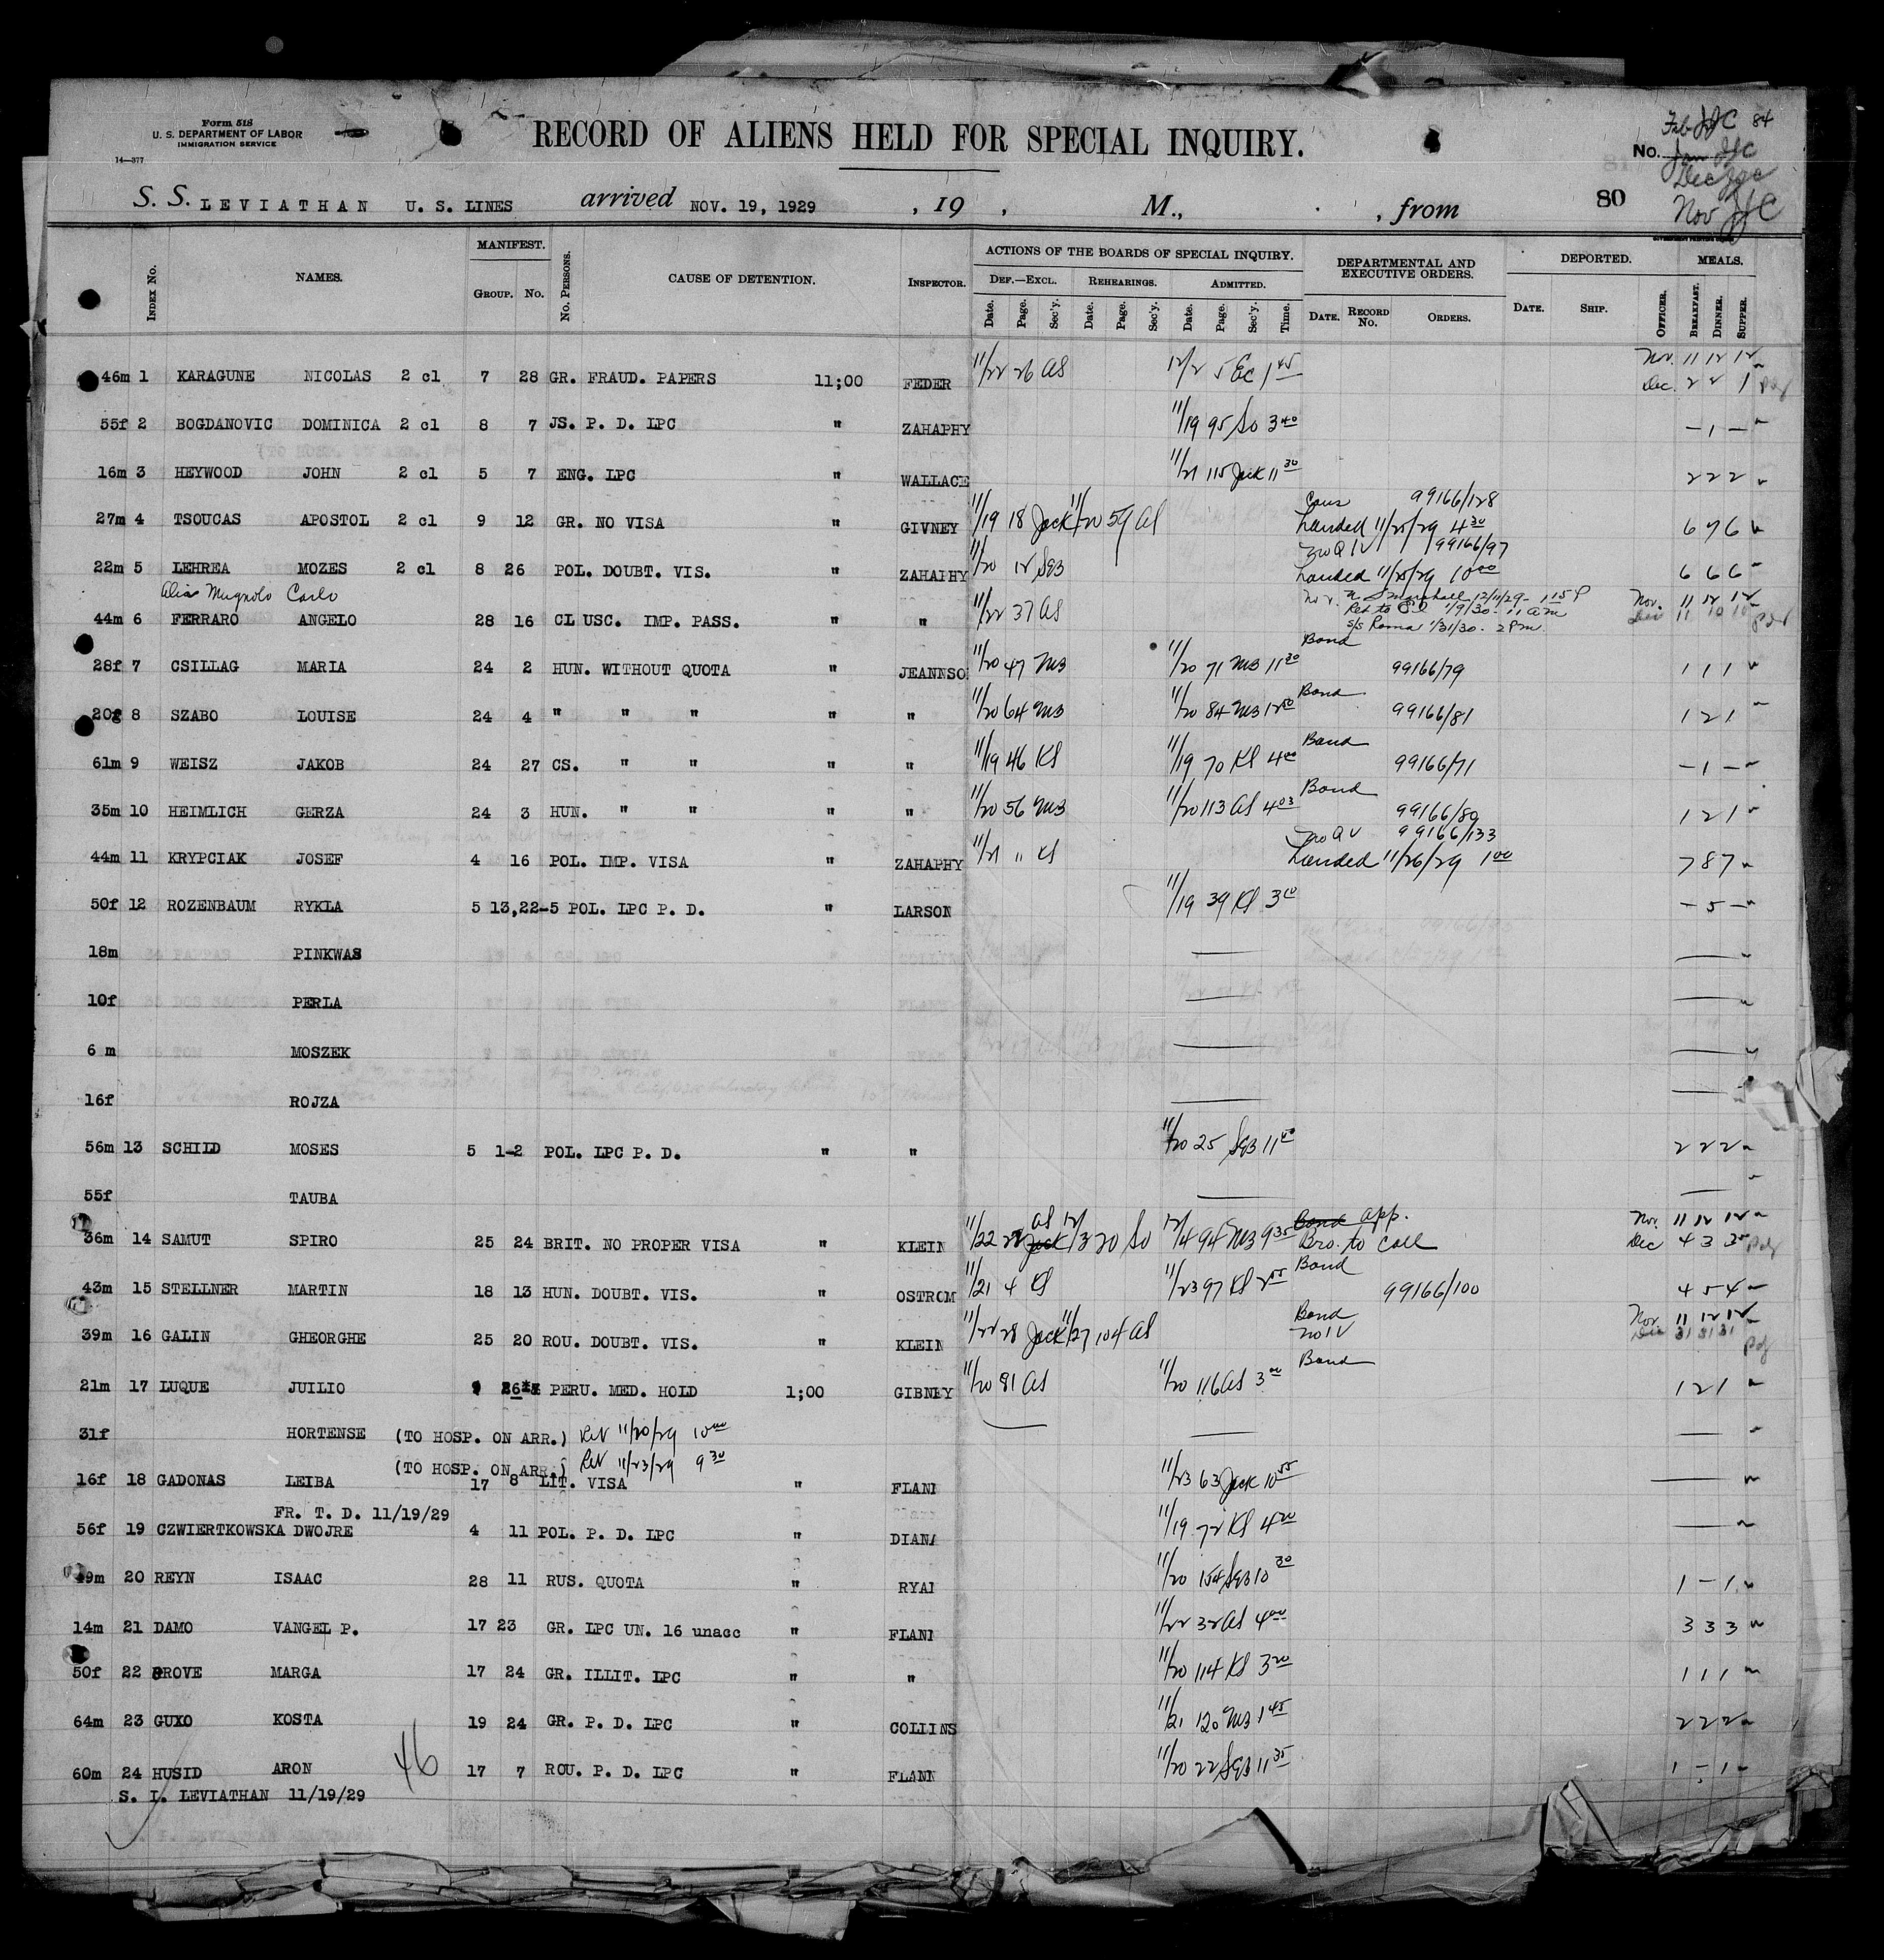 Form 518
U. S. DEPARTMENT OF LABOR
IMMIGRATION SERVICE
14—377
RECORD OF ALIENS HELD FOR SPECIAL INQUIRY.
84
No.
Nov
S. S. LEVIATHAN U. S. LINES arrived NOV. 19, 1929 , 19 , M., , from 80
INDEX No. NAMES. MANIFEST. GROUP. No. No. PERSONS. CAUSE OF DETENTION. INSPECTOR. ACTIONS OF THE BOARDS OF SPECIAL INQUIRY. DEF.—EXCL. REHEARINGS. ADMITTED. DEPARTMENTAL AND EXECUTIVE ORDERS. DEPORTED. MEALS.
Date. Page. Sec'y. Date. Page. Sec'y. Date. Page. Sec'y. Time. DATE. RECORD No. ORDERS. DATE. SHIP. OFFICER. BREAKFAST. DINNER. SUPPER.
46m 1 KARAGUNE NICOLAS 2 cl 7 28 GR. FRAUD. PAPERS 11;00 FEDER 11/22 26 AS 12/2 5 EC 1 45 Nov. 11 12 12
Dec. 2 2 1
55f 2 BOGDANOVIC DOMINICA 2 cl 8 7 JS. P. D. LPC " ZAHAPHY 11/19 95 So 3 40 – 1 –
16m 3 HEYWOOD JOHN 2 cl 5 7 ENG. LPC " WALLACE 11/21 115 Jack 11 30 2 2 2
99166/128
27m 4 TSOUCAS APOSTOL 2 cl 9 12 GR. NO VISA " GIVNEY 11/19 18 Jack 11/20 59 AS Landed 11/25/29 4 30 6 7 6
99166/97
22m 5 LEHREA MOZES 2 cl 8 26 POL. DOUBT. VIS. " ZAHAPHY 11/20 12 SGB Landed 11/25/29 10 00 6 6 6
Alias Mugnolo Carlo
44m 6 FERRARO ANGELO 28 16 CL USC. IMP. PASS. " " 11/22 37 AS Marshall 12/11/29 - 1 15 P Nov. 11 12 12
Ret to EI 1/9/30 - 11 am 11 10 10
S/S Roma 1/31/30. 2 Pm.
28f 7 CSILLAG MARIA 24 2 HUN. WITHOUT QUOTA " JEANNSO 11/20 47 MB 11/20 71 MB 11 30 Bond 99166/79 1 1 1
20f 8 SZABO LOUISE 24 4 " " " " " 11/20 64 MB 11/20 84 MB 12 50 Bond 99166/81 1 2 1
61m 9 WEISZ JAKOB 24 27 CS. " " " " 11/19 46 KS 11/19 70 KS 4 00 Bond 99166/71 – 1 –
35m 10 HEIMLICH GERZA 24 3 HUN. " " " " 11/20 56 MB 11/20 113 AS 4 03 Bond 99166/89 1 2 1
99166/133
44m 11 KRYPCIAK JOSEF 4 16 POL. IMP. VISA " ZAHAPHY 11/21 11 KS Landed 11/26/29 1 00 7 8 7
50f 12 ROZENBAUM RYKLA 5 13,22-5 POL. LPC P. D. " LARSON 11/19 39 KS 3 10 – 5 –
18m PINKWAS
10f PERLA
6 m MOSZEK
16f ROJZA
56m 13 SCHILD MOSES 5 1-2 POL. LPC P. D. " " 11/20 25 SGB 11 40 2 2 2
55f TAUBA
36m 14 SAMUT SPIRO 25 24 BRIT. NO PROPER VISA " KLEIN 11/22 22 Jack AS 12/3 20 So 12/4 94 MB 9 35 Bond app. Nov. 11 12 12
Bro. to call Dec 4 3 3
43m 15 STELLNER MARTIN 18 13 HUN. DOUBT. VIS. " OSTROM 11/21 4 KS 11/23 97 KS 2 55 Bond 99166/100 4 5 4
39m 16 GALIN GHEORGHE 25 20 ROU. DOUBT. VIS. " KLEIN 11/22 28 Jack 11/27 104 AS Bond Nov 11 12 12
31 31 31
21m 17 LUQUE JUILIO PERU. MED. HOLD 1;00 GIBNEY 11/20 81 AS 11/20 116 AS 3 00 Bond 1 2 1
31f HORTENSE (TO HOSP. ON ARR.) Ret 11/20/29 10 00
(TO HOSP. ON ARR.) Ret 11/23/29 9 30
16f 18 GADONAS LEIBA 17 8 LIT. VISA " FLAN 11/23 63 Jack 10 55
FR. T. D. 11/19/29
56f 19 CZWIERTKOWSKA DWOJRE 4 11 POL. P. D. LPC " DIANA 11/19 72 KS 4 20
49m 20 REYN ISAAC 28 11 RUS. QUOTA " RYAN 11/20 154 SGB 10 30 1 – 1
14m 21 DAMO VANGEL P. 17 23 GR. LPC UN. 16 unacc " FLAN 11/22 32 AS 4 00 3 3 3
50f 22 PROVE MARGA 17 24 GR. ILLIT. LPC " " 11/20 114 KS 3 20 1 1 1
64m 23 GUXO KOSTA 19 24 GR. P. D. LPC " COLLINS 11/21 120 MB 1 45 2 2 2
60m 24 HUSID ARON 46 17 7 ROU. P. D. LPC " FLANN 11/20 22 SGB 11 35 1 – 1
S. I. LEVIATHAN 11/19/29